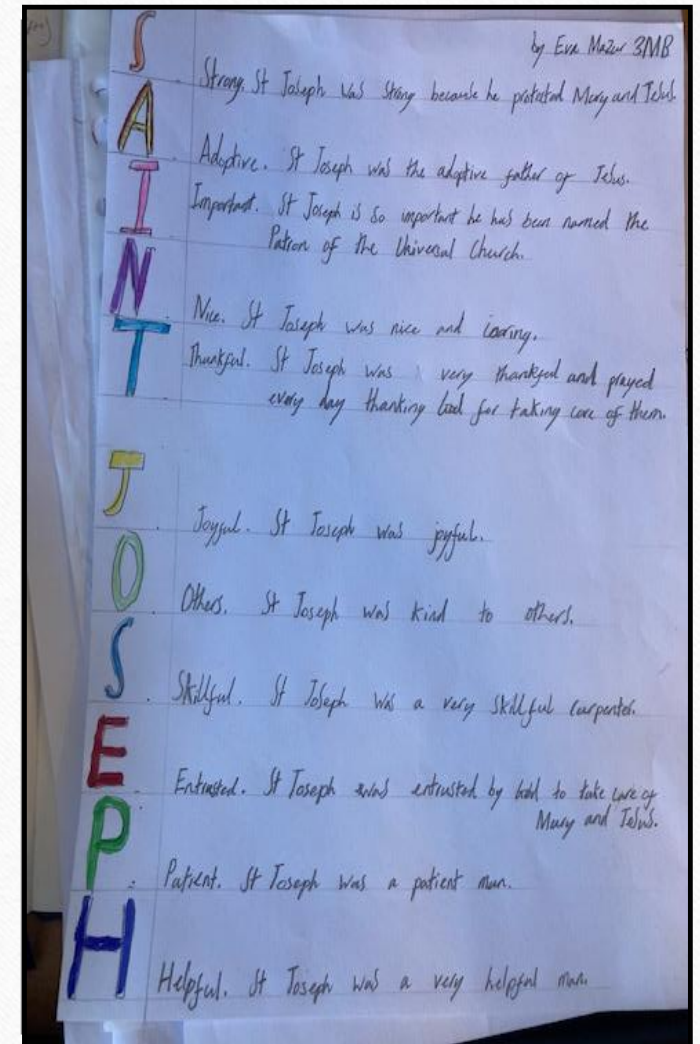 by Eva Mazur 3MB
S
Strong. St Joseph was strong because he protected Mary and Jesus.
A
Adoptive. St Joseph was the adoptive father of Jesus.
I
Important. St Joseph is so important he has been named the
Patron of the Universal Church.
N
Nice. St Joseph was nice and caring.
T
Thankful. St Joseph was very thankful and prayed
every day thanking God for taking care of them.
J
Joyful. St Joseph was joyful.
O
Others. St Joseph was kind to others.
S
Skillful. St Joseph was a very skillful carpenter.
E
Entrusted. St Joseph was entrusted by God to take care of
Mary and Jesus.
P
Patient. St Joseph was a patient man.
H
Helpful. St Joseph was a very helpful man.